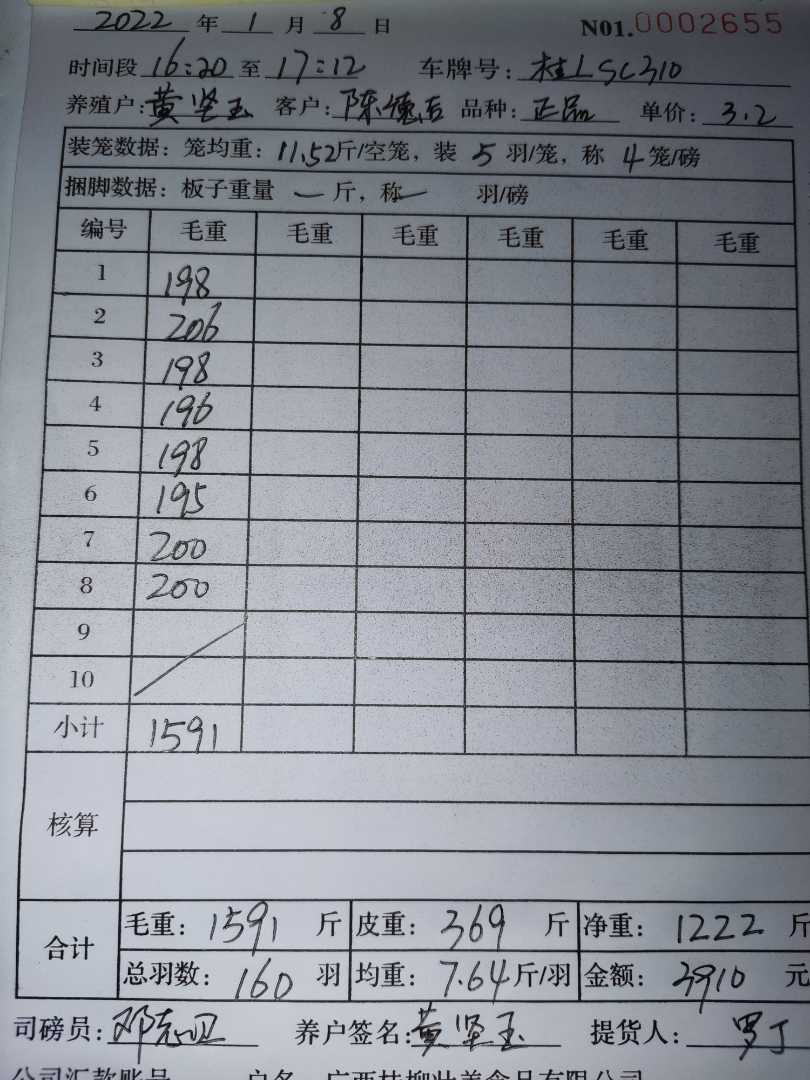 2022 年 1 月 8 日 N01.0002655
时间段 16:20 至 17:12 车牌号: 桂LSC310
养殖户: 黄坚玉 客户: 陈德吉 品种: 正品 单价: 3.2
装笼数据: 笼均重: 11.52斤/空笼, 装 5 羽/笼, 称 4 笼/磅
捆脚数据: 板子重量 — 斤, 称— 羽/磅
编号 毛重 毛重 毛重 毛重 毛重 毛重
1 198
2 206
3 198
4 196
5 198
6 195
7 200
8 200
9
10
小计 1591
核算
合计
毛重: 1591 斤 皮重: 369 斤 净重: 1222 斤
总羽数: 160 羽 均重: 7.64斤/羽 金额: 3910 元
司磅员: 邓志卫 养户签名: 黄坚玉 提货人: 罗丁